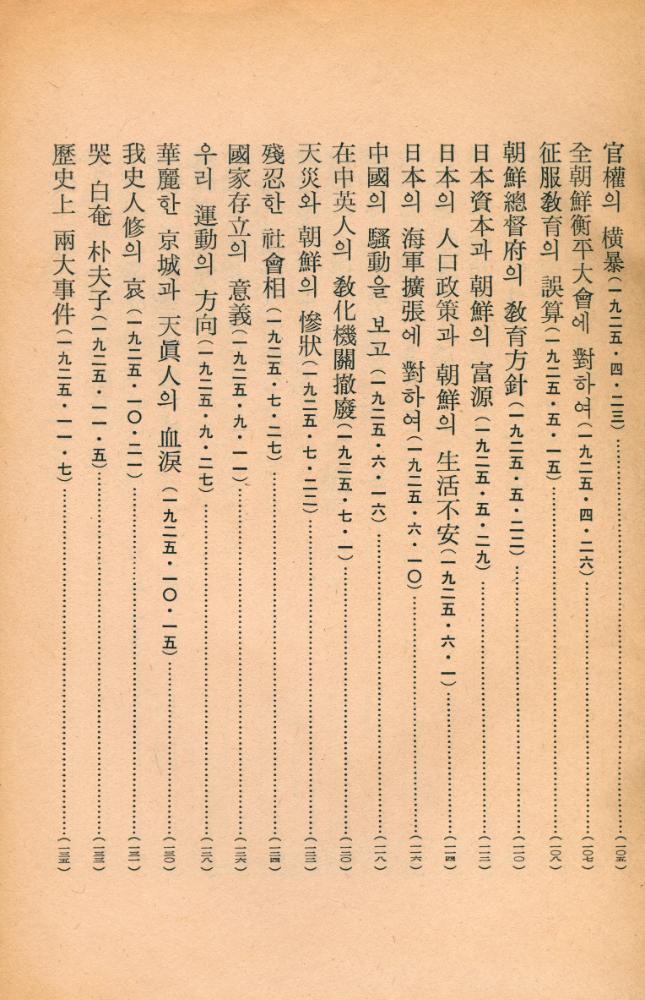 官權의 橫暴(一九二五・四・二三)……(一〇五)
全朝鮮衡平大會에 對하여(一九二五・四・二六)……(一〇七)
征服敎育의 誤算(一九二五・五・一五)……(一〇八)
朝鮮總督府의 敎育方針(一九二五・五・二二)……(一一〇)
日本資本과 朝鮮의 富源(一九二五・五・二九)……(一一二)
日本의 人口政策과 朝鮮의 生活不安(一九二五・六・一)……(一一四)
日本의 海軍擴張에 對하여(一九二五・六・一〇)……(一一六)
中國의 騷動을 보고(一九二五・六・一六)……(一一八)
在中英人의 敎化機關撤廢(一九二五・七・一)……(一二〇)
天災와 朝鮮의 慘狀(一九二五・七・二二)……(一二二)
殘忍한 社會相(一九二五・七・二七)……(一二四)
國家存立의 意義(一九二五・九・一一)……(一二六)
우리 運動의 方向(一九二五・九・二七)……(一二八)
華麗한 京城과 天眞人의 血淚(一九二五・一〇・一五)……(一三〇)
我史人修의 哀(一九二五・一〇・二一)……(一三一)
哭 白奄 朴夫子(一九二五・一一・五)……(一三三)
歷史上 兩大事件(一九二五・一一・七)……(一三五)